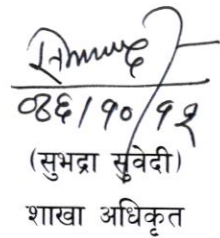 ०८६/१०/१२
(सुभद्रा सुवेदी)
शाखा अधिकृत